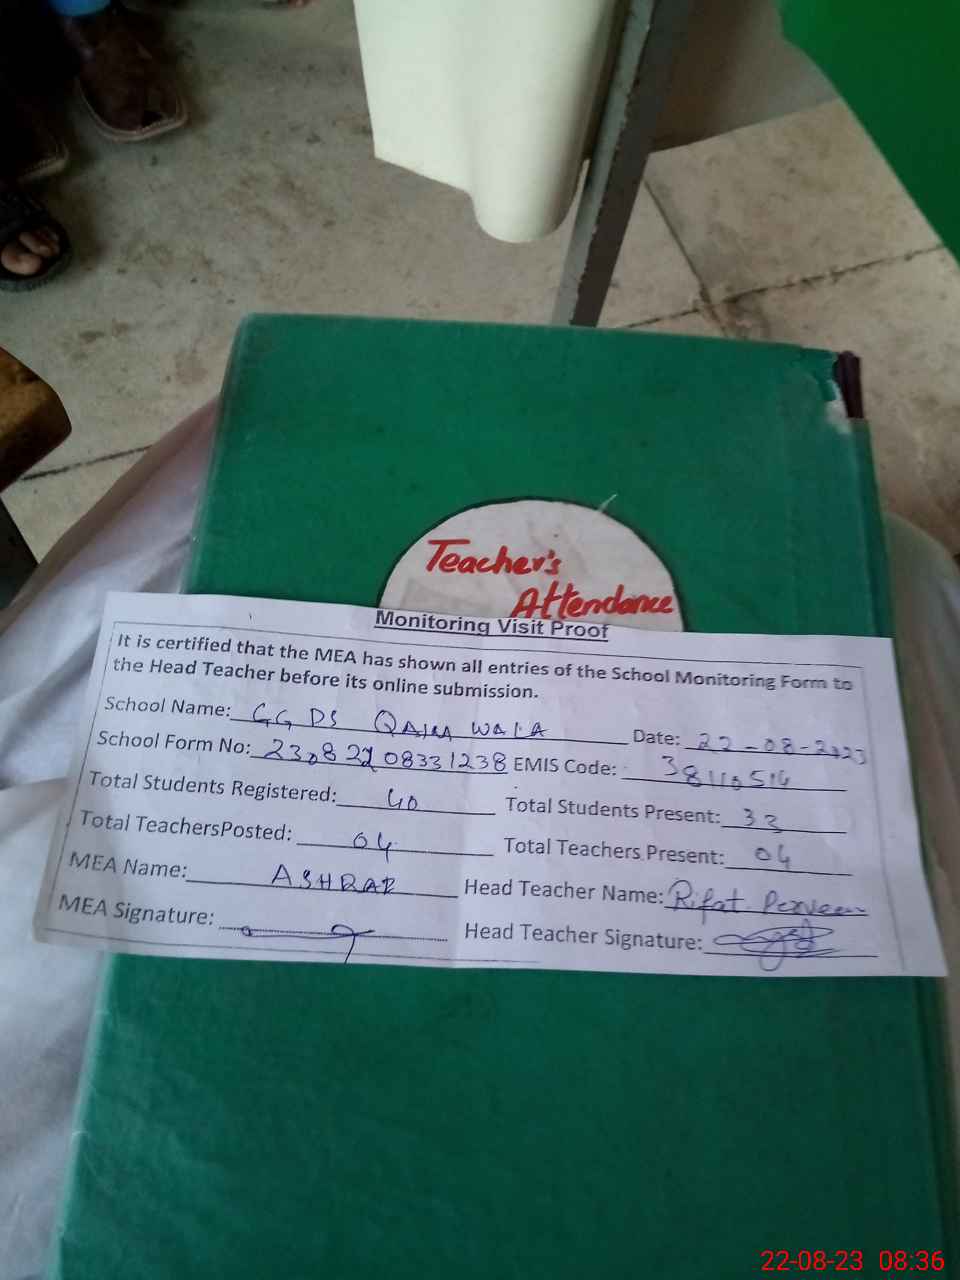 Teacher's
Attendance
Monitoring Visit Proof
It is certified that the MEA has shown all entries of the School Monitoring Form to
the Head Teacher before its online submission.
School Name: GG DS WALA Date: 22-08-2023
School Form No: EMIS Code: 38110514
Total Students Registered: 40 Total Students Present: 33
Total TeachersPosted: 04 Total Teachers Present: 04
MEA Name: ASHRAF Head Teacher Name: Rifat Perveen
MEA Signature: Head Teacher Signature:
22-08-23 08:36